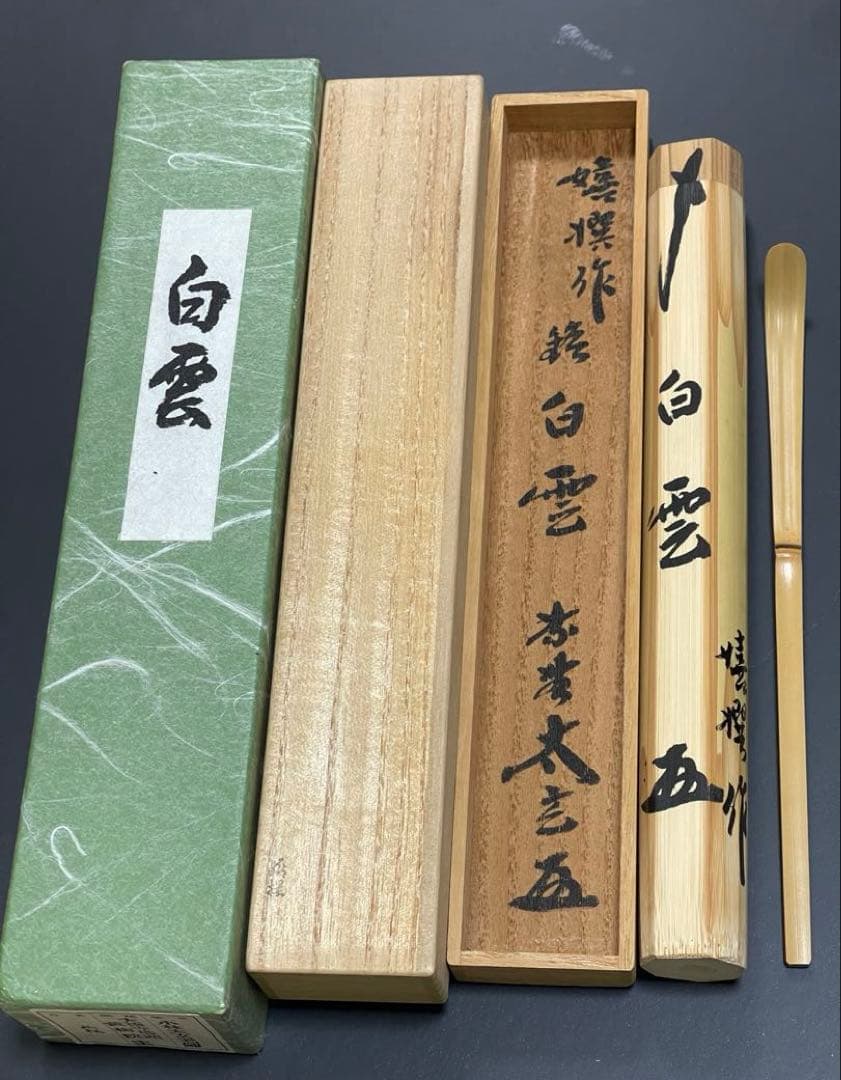 白雲
嬉撰作
銘 白雲
紫野 太玄
白雲
嬉撰作